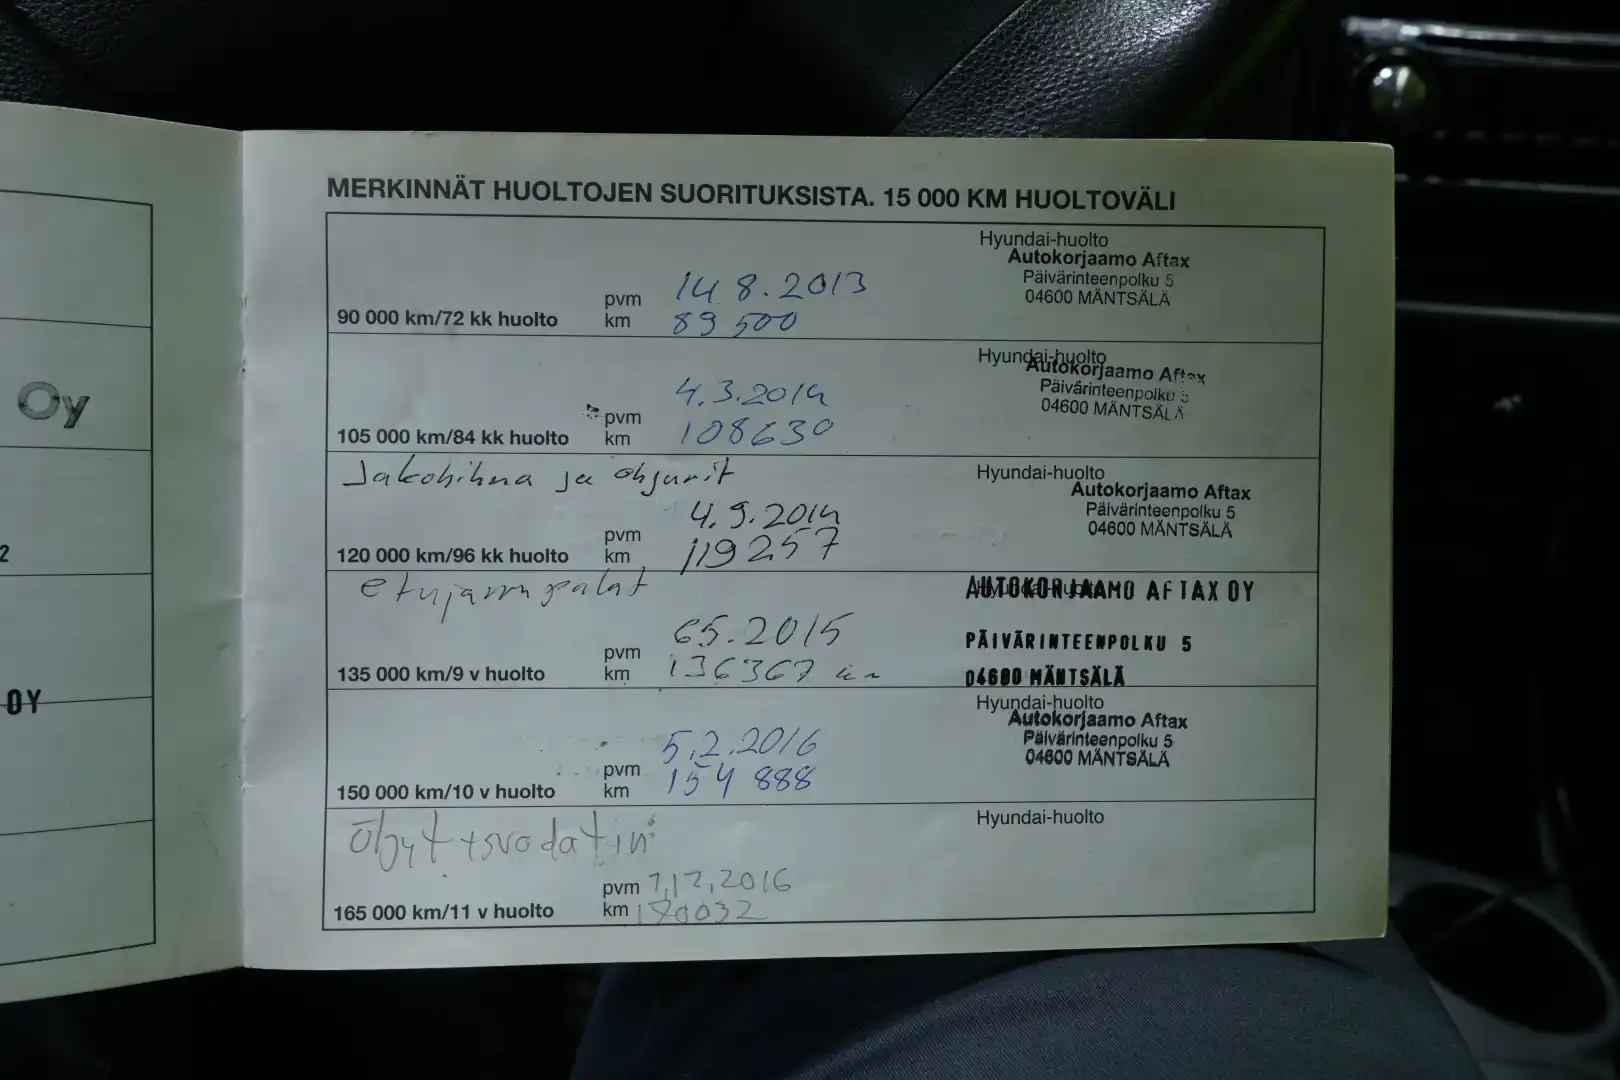 MERKINNÄT HUOLTOJEN SUORITUKSISTA. 15 000 KM HUOLTOVÄLI
Hyundai-huolto
Autokorjaamo Aftax
Päivärinteenpolku 5
04600 MÄNTSÄLÄ
pvm 14.8.2013
90 000 km/72 kk huolto km 89 500
Hyundai-huolto
Autokorjaamo Aftax
Päivärinteenpolku 5
04600 MÄNTSÄLÄ
pvm 4.3.2014
105 000 km/84 kk huolto km 108630
Jakohihna ja ohjurit
Hyundai-huolto
Autokorjaamo Aftax
Päivärinteenpolku 5
04600 MÄNTSÄLÄ
pvm 4.9.2014
120 000 km/96 kk huolto km 119257
etujarrupalat
Hyundai-huolto
AUTOKORJAAMO AFTAX OY
PÄIVÄRINTEENPOLKU 5
04600 MÄNTSÄLÄ
pvm 6.5.2015
135 000 km/9 v huolto km 136367
Hyundai-huolto
Autokorjaamo Aftax
Päivärinteenpolku 5
04600 MÄNTSÄLÄ
pvm 5.2.2016
150 000 km/10 v huolto km 154 888
Hyundai-huolto
öljyt +suodatin
pvm 7.12.2016
165 000 km/11 v huolto km 170032
Oy
2
OY